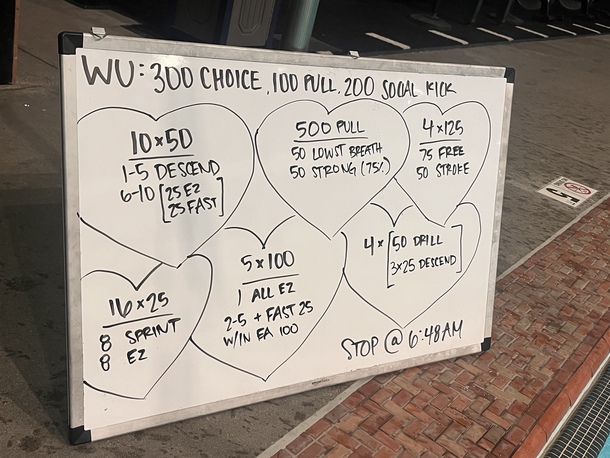 WU: 300 CHOICE, 100 PULL, 200 SOCIAL KICK
10 x 50
1-5 DESCEND
6-10 [25 EZ
25 FAST]
500 PULL
50 LOWST BREATH
50 STRONG (75%)
4 x 125
75 FREE
50 STROKE
16 x 25
8 SPRINT
8 EZ
5 x 100
1 ALL EZ
2-5 + FAST 25
W/IN EA 100
4 x [50 DRILL
3x25 DESCEND]
STOP @ 6:48AM